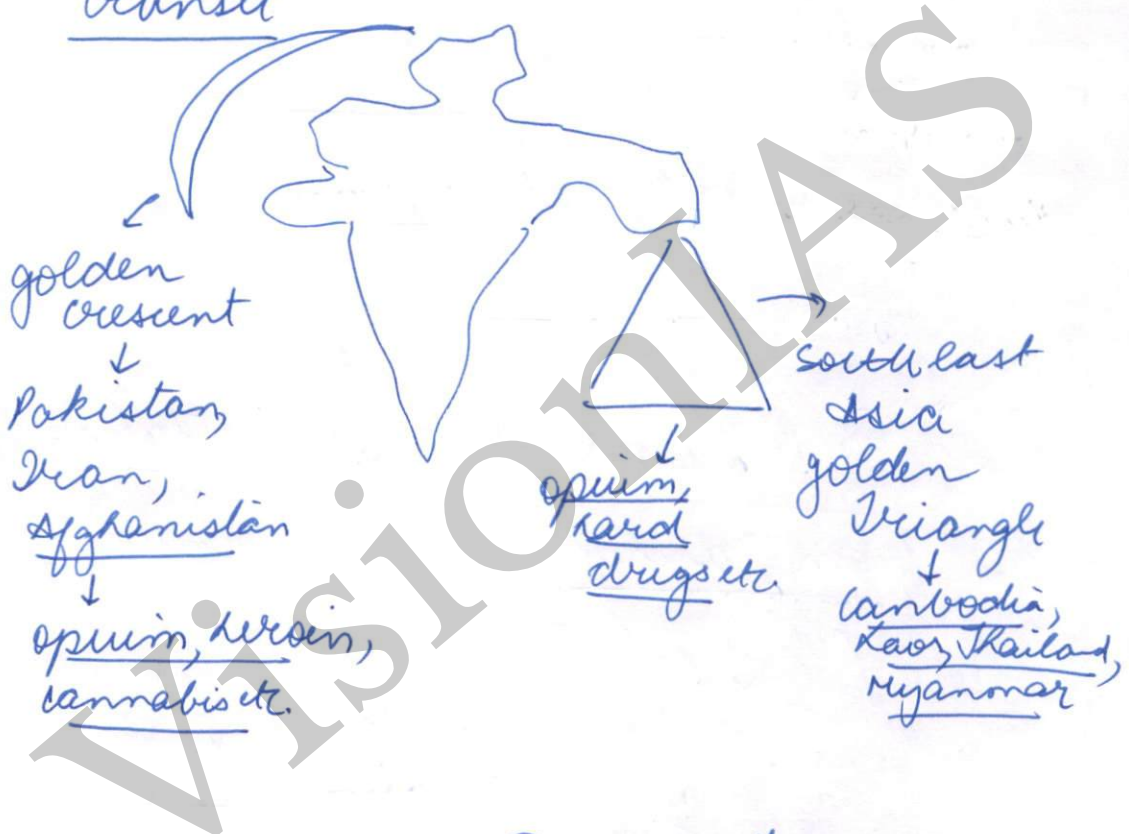 transit
golden
crescent
Pakistan,
Iran,
Afghanistan
opuim, heroin,
cannabis etc.
opuim,
hard
drugs etc.
South east
Asia
golden
Triangle
Cambodia,
Laos, Thailand,
Myanmar
VisionIAS